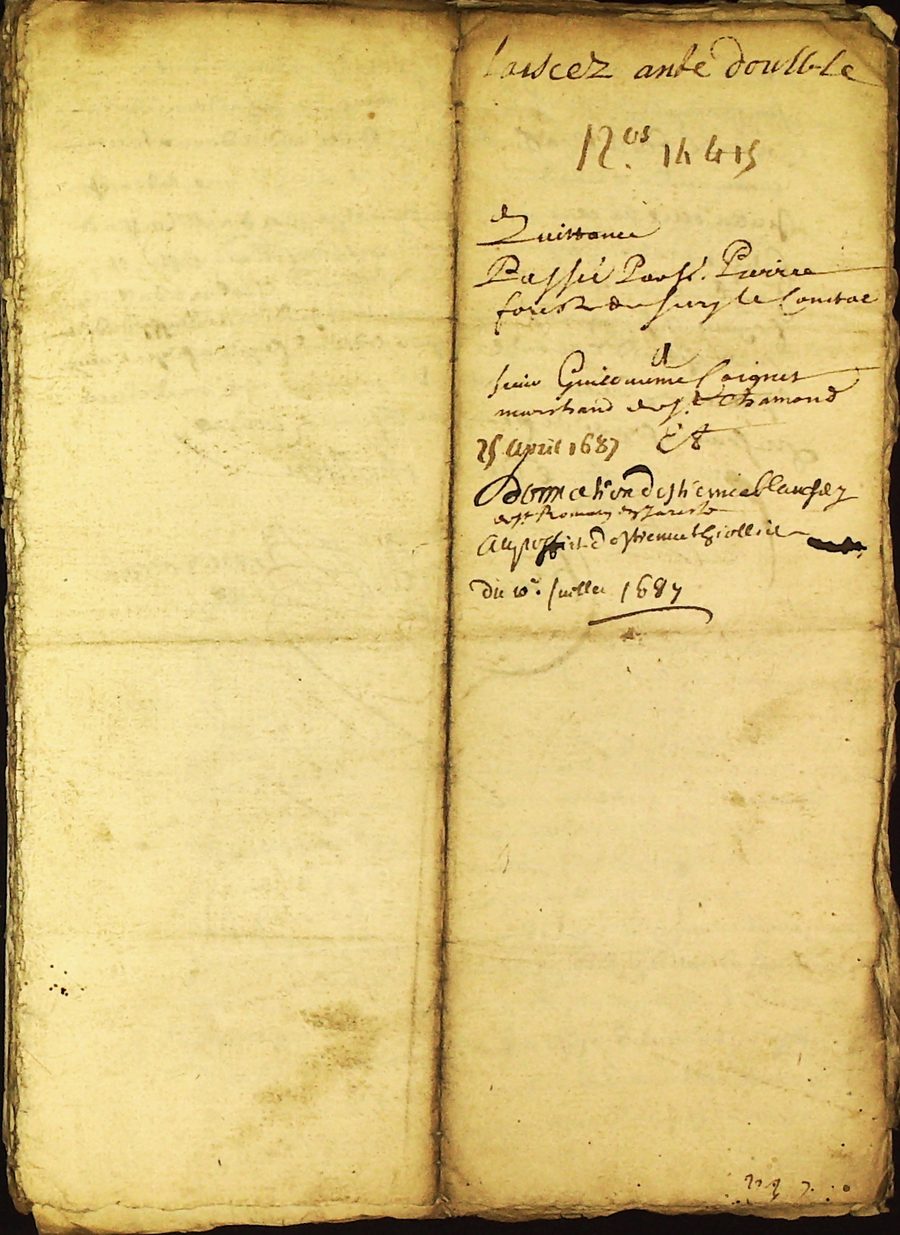 double
N.os 14 & 15
Quittance
Passée Par Sr. Pierre
forest de sury le Comtal
A
sieur Guilleaume Coignet
marchand de St Chamond
25 Apvril 1687 Et
Donnation d'estienne blanchery
de St Romain en Jarests
Au proffict d'estienne thiollier
du 10e. Juillet 1687